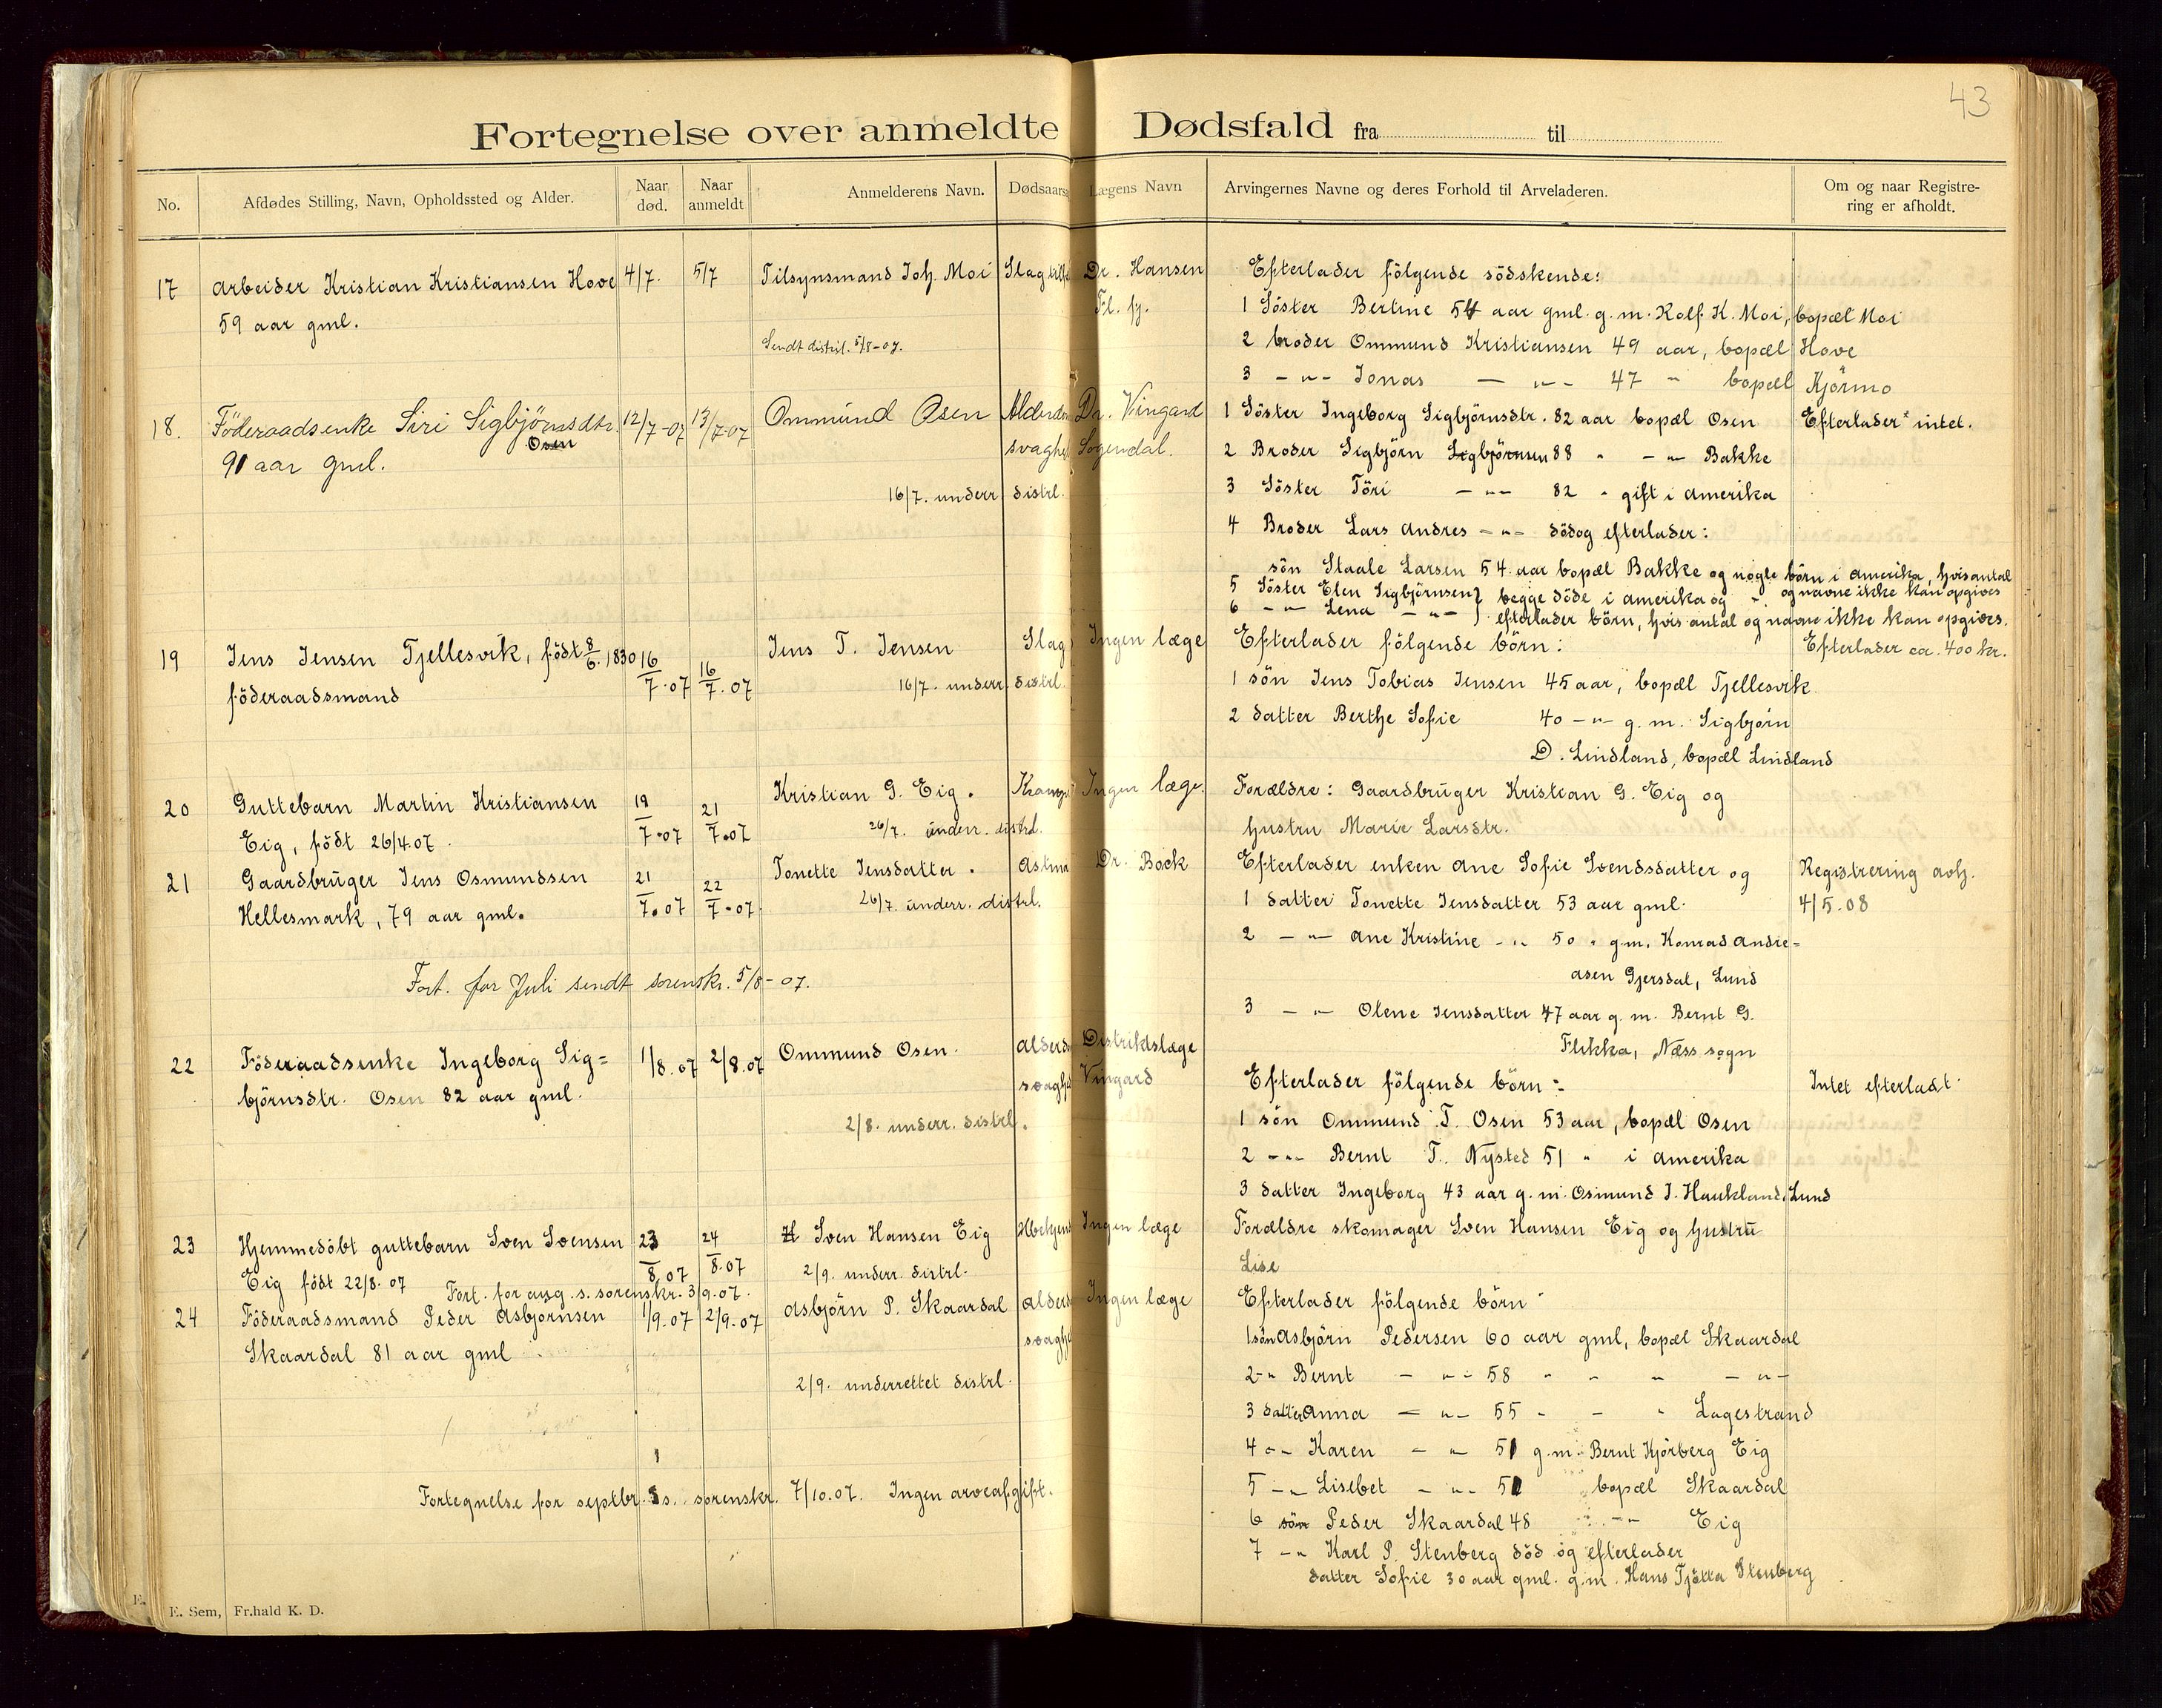 43
Fortegnelse over anmeldte Dødsfald fra til
No. Afdødes Stilling, Navn, Opholdssted og Alder. Naar død. Naar anmeldt Anmelderens Navn. Dødsaars Lægens Navn Arvingernes Navne og deres Forhold til Arveladeren. Om og naar Registrering er afholdt.
17 Arbeider Kristian Kristiansen Hove 4/7. 5/7 Tilsynsmand Joh. Moi Dr. Hansen Efterlader fölgende södskende:
59 aar gml. Fl. fj. 1 Söster Bertine 54 aar gml. g. m. Rolf K. Moi, bopæl Moi
Sendt distril. 5/8-07. 2 broder Ommund Kristiansen 49 aar, bopæl Hove
3 -"- Jonas - "- 47 " bopæl Kjörmo
18. Föderaadsenke Siri Sigbjörnsdtr. 12/7-07 13/7-07 Ommund Osen Alderdom Dr. Vingard 1 Söster Ingeborg Sigbjörnsdtr. 82 aar bopæl Osen Efterlader intet.
Osen
91 aar gml. svaghed Sogendal. 2 Broder Sigbjörn Sigbjörnsen 88 " -"- Bakke
16/7. underr distrl. 3 Söster Töri -"- 82 " gift i Amerika
4 Broder Lars Andres -"- död og efterlader:
sön Staale Larsen 54 aar bopæl Bakke og nogle börn i Amerika, hvis antal
og navne ikke kan opgives
5 Söster Elen Sigbjörnsen } begge döde i Amerika og
6 -"- Lena -"- } efterlader börn, hvis antal og navne ikke kan opgives.
19 Jens Jensen Tjellesvik, födt 8/6. 1830 16/7.07 16/7.07 Jens T. Jensen Slag Ingen læge Efterlader fölgende börn: Efterlader ca. 400 kr.
föderaadsmand 16/7. underr. distrl. 1 sön Jens Tobias Jensen 45 aar, bopæl Tjellesvik
2 datter Berthe Sofie 40 -"- g. m. Sigbjörn
D. Lindland, bopæl Lindland
20 Guttebarn Martin Kristiansen 19/7.07 21/7.07 Kristian G. Eig. Ingen læge Forældre: Gaardbrüger Kristian G. Eig og
Eig, födt 26/4.07. 26/7. underr. distrl. hustru Marie Larsdtr.
21 Gaardbrüger Jens Osmundsen 21/7.07 22/7.07 Tonette Jensdatter. Astma Dr. Bock Efterlader enken Ane Sofie Svendsdatter og Registrering avh.
Hellesmark, 79 aar gml. 26/7. underr. distrl. 1 datter Tonette Jensdatter 53 aar gml. 4/5.08
2 -"- Ane Kristine -"- 50 " g.m. Konrad Andre=
asen Gjersdal, Lund
Fort. for Juli sendt sorenskr. 5/8-07.
3 -"- Olene Jensdatter 47 aar g. m. Bernt G.
Flikka, Næss sogn
22 Föderaadsenke Ingeborg Sig= 1/8.07 2/8.07 Ommund Osen. Alderdoms Distriktslæge
björnsdtr. Osen 82 aar gml. svaghed Vingard Efterlader fölgende börn: Intet efterladt
2/8. underr. distrl. 1 sön Ommund T. Osen 53 aar, bopæl Osen
2 -"- Bernt T. Nysted 51 " i Amerika
3 datter Ingeborg 43 aar g. m. Osmund J. Haukland, Lund
23 Hjemmedöbt guttebarn Sven Svensen 23/8.07 24/8.07 Sven Hansen Eig Ubekjend Ingen læge Forældre skomager Sven Hansen Eig og hustru
Eig födt 22/8.07 2/9. underr. distrl. Lise
Fort. for aug. s. sorenskr. 3/9.07.
24 Föderaadsmand Peder Asbjornsen 1/9.07 2/9.07 Asbjörn P. Skaardal Alderdoms Ingen læge Efterlader fölgende börn
Skaardal 81 aar gml svaghed 1 sön Asbjörn Pedersen 60 aar gml, bopæl Skaardal
2/9. underrettet distrl. 2 -"- Bernt - "- 58 " - " -"-
3 datter Anna - "- 55 - - " Lagestrand
4 -"- Karen - "- 51 g.m. Bernt Kjörberg Eig
5 -"- Lisebet - "- 51 bopæl Skaardal
Fortegnelse for septbr. s. sorenskr. 7/10.07. Ingen arveafgift.
6 sön Peder Skaardal 48 -"- Eig
7 -"- Karl P. Stenberg död og efterlader
datter Sofie 30 aar gml. g.m. Hans Tjötta Stenberg
E. Sem, Fr.hald K. D.